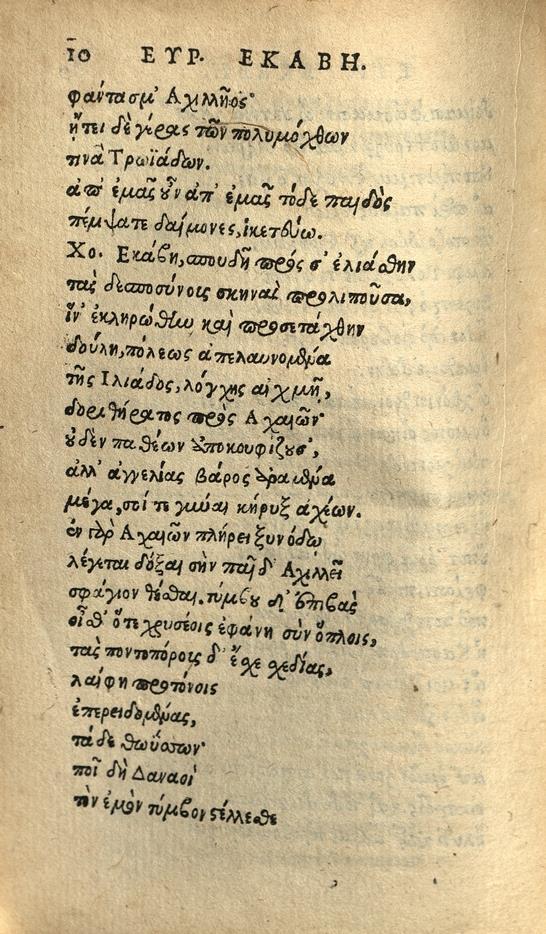 10 ΕΥΡ. ΕΚΑΒΗ.
φάντασμ' Αχιλλῆος·
ᾔτει δὲ γέρας τῶν πολυμόχθων
τινὰ Τρωϊάδων.
ἀπ' ἐμᾶς οὖν ἀπ' ἐμᾶς τόδε παιδὸς
πέμψατε δαίμονες, ἱκετεύω.
Χο. Εκάβη, σπουδῇ πρός σ' ἐλιάσθην
τὰς δεσποσύνοις σκηνὰς προλιποῦσα,
ἵν' ἐκληρώθην καὶ προσετάχθην
δούλη, πόλεως ἀπελαυνομένα
τῆς Ιλιάδος, λόγχης αἰχμῇ,
δοριθήρατος πρὸς Αχαιῶν·
οὐδὲν παθέων ἀποκουφίζουσ',
ἀλλ' ἀγγελίας βάρος ἀραμένα
μέγα, σοί τε γύναι κήρυξ ἀχέων.
ἐν γὰρ Αχαιῶν πλήρει ξυνόδῳ
λέγεται δόξαι σὴν παῖδ' Αχιλλεῖ
σφάγιον θέσθαι. τύμβου δ' ἐπιβὰς
οἶσθ' ὅτε χρυσέοις ἐφάνη σὺν ὅπλοις,
τὰς ποντοπόρους δ' ἔσχε σχεδίας,
λαίφη προτόνοις
ἐπερειδομένας,
τάδε θωΰσσων·
ποῖ δὴ Δαναοὶ
τὸν ἐμὸν τύμβον στέλλεσθε